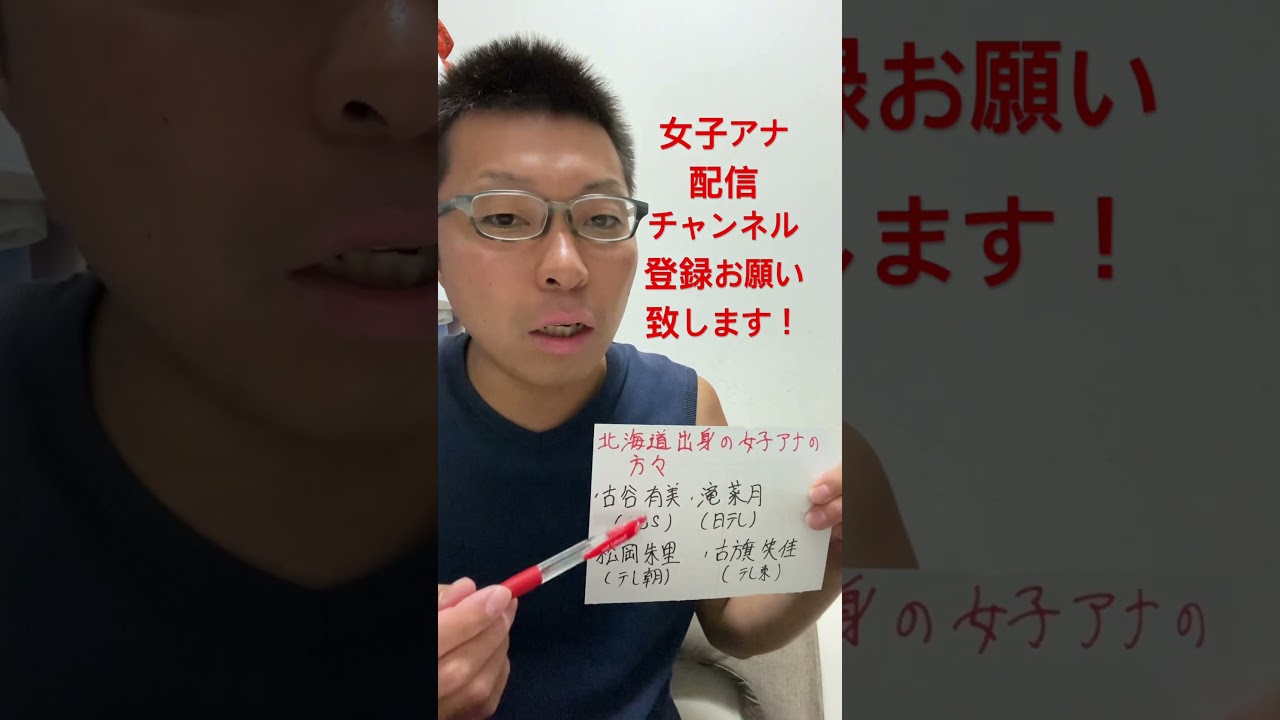 女子アナ
配信
チャンネル
登録お願い
致します！
北海道出身の女子アナの
方々
・古谷有美・滝菜月
(日テレ)
松岡朱里・古旗笑佳
(テレ朝)(テレ東)
録お願い
します！
身の女子アナの